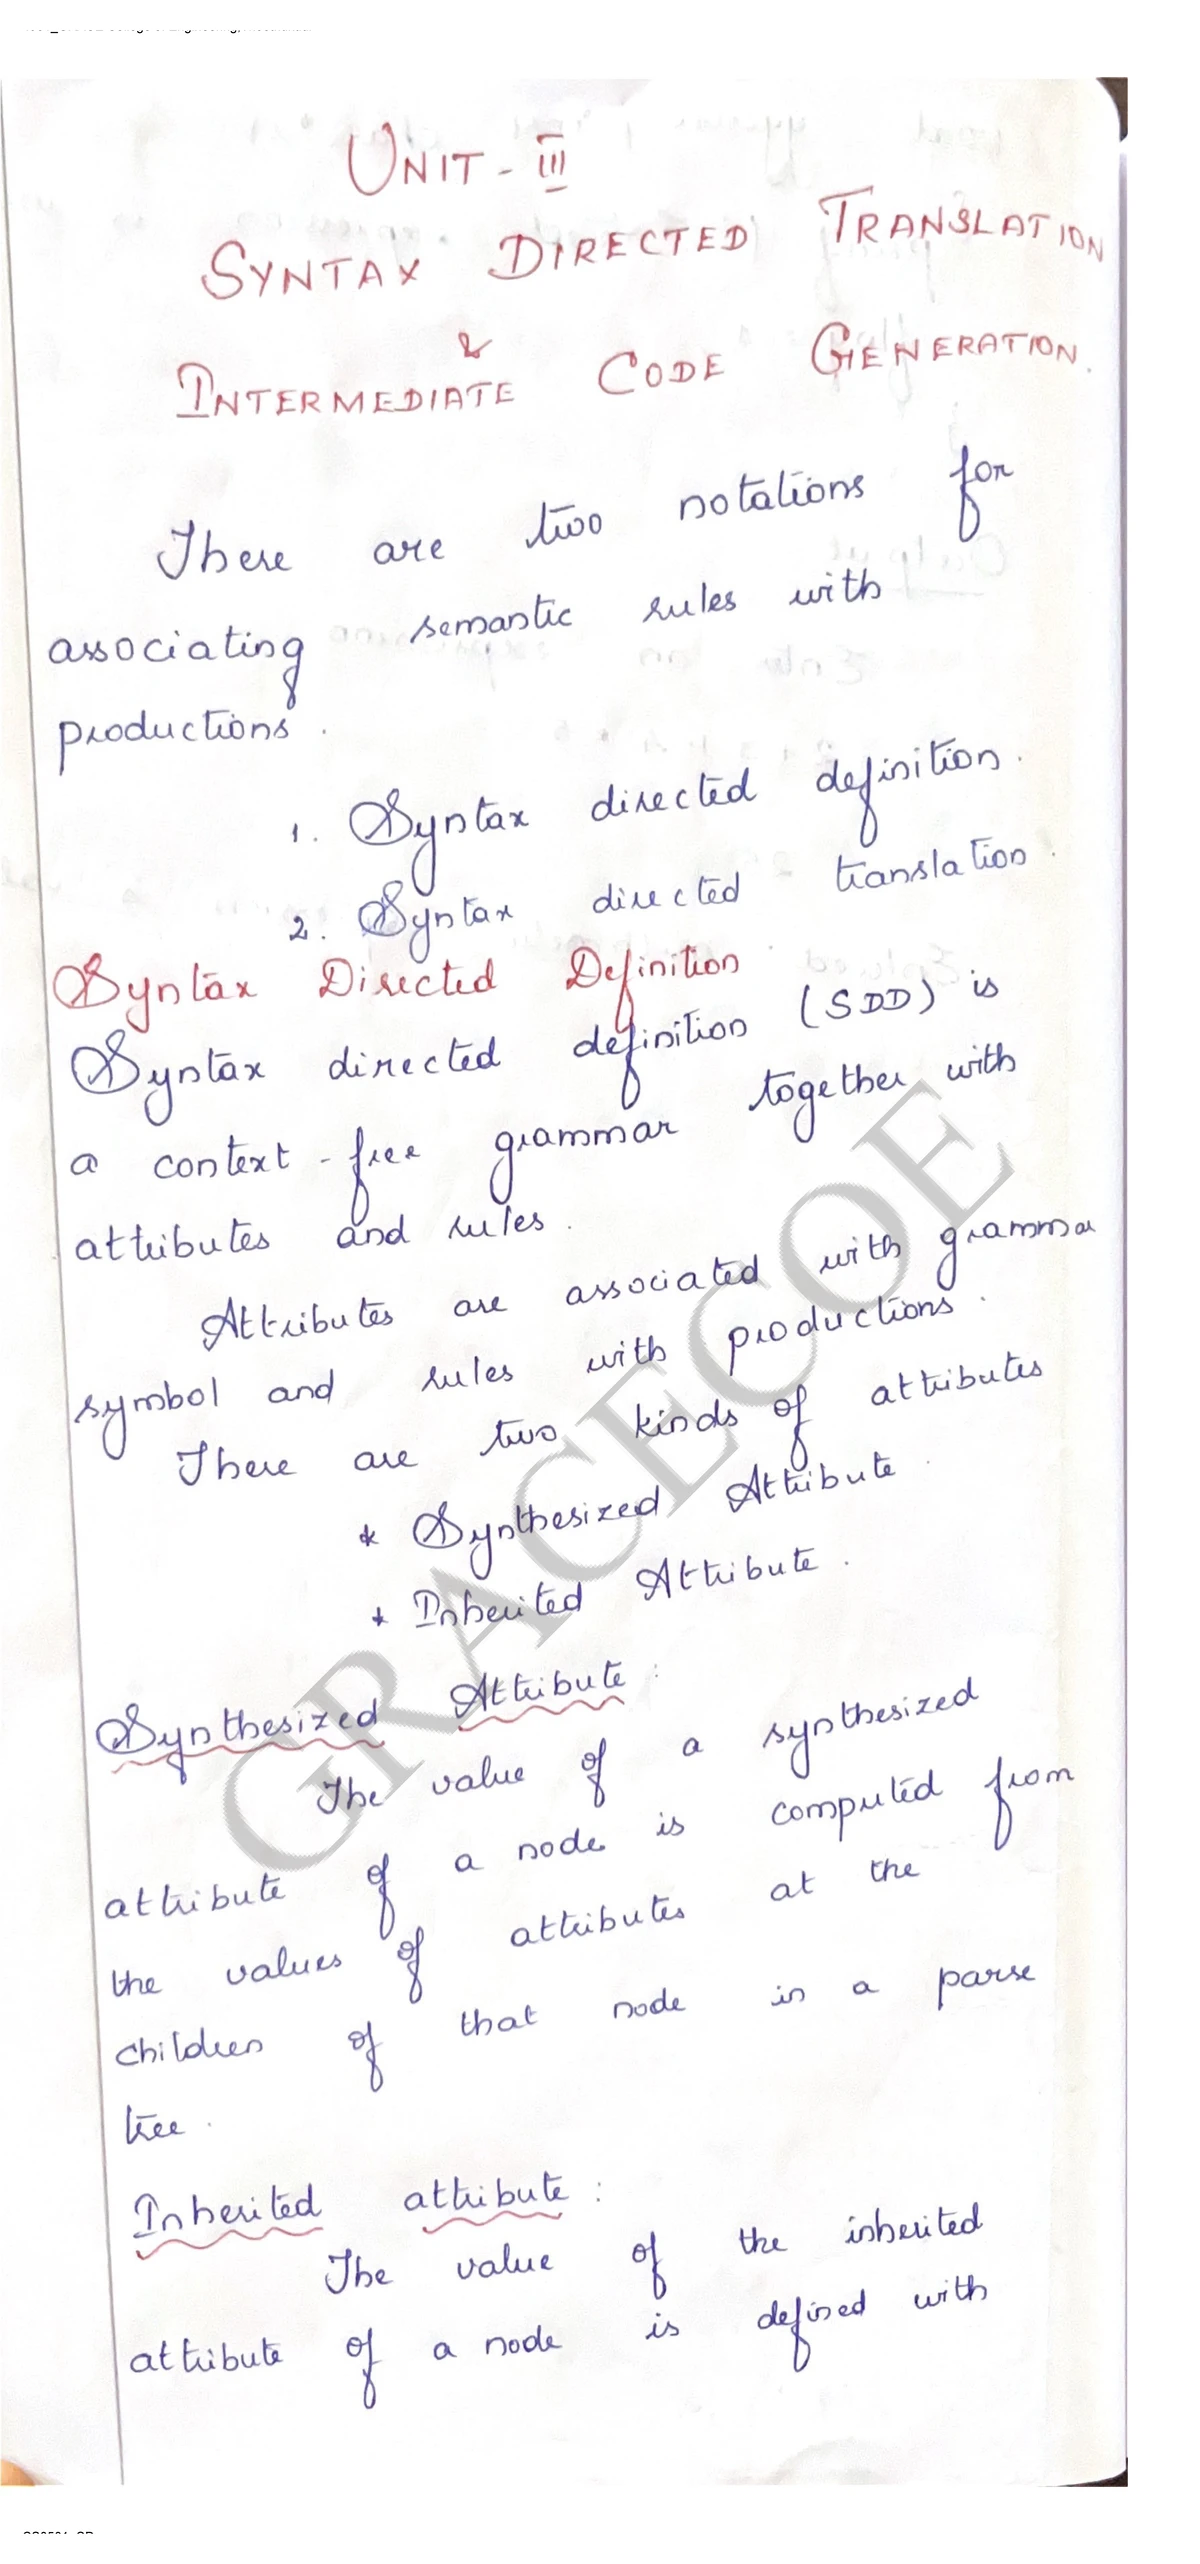 UNIT - III
SYNTAX DIRECTED TRANSLATION
&
INTERMEDIATE CODE GENERATION.
There are two notations for
associating semantic rules with
productions.
1. Syntax directed definition.
2. Syntax directed translation.
Syntax Directed Definition
Syntax directed definition (SDD) is
a context-free grammar together with
attributes and rules.
Attributes are associated with gramma
symbol and rules with productions.
There are two kinds of attributes
* Synthesized Attribute.
* Inherited Attribute.
Synthesized Attribute:
The value of a synthesized
attribute of a node is computed from
the values of attributes at the
children of that node in a parse
tree.
Inherited attribute:
The value of the inherited
attribute of a node is defined with
GRACECOE